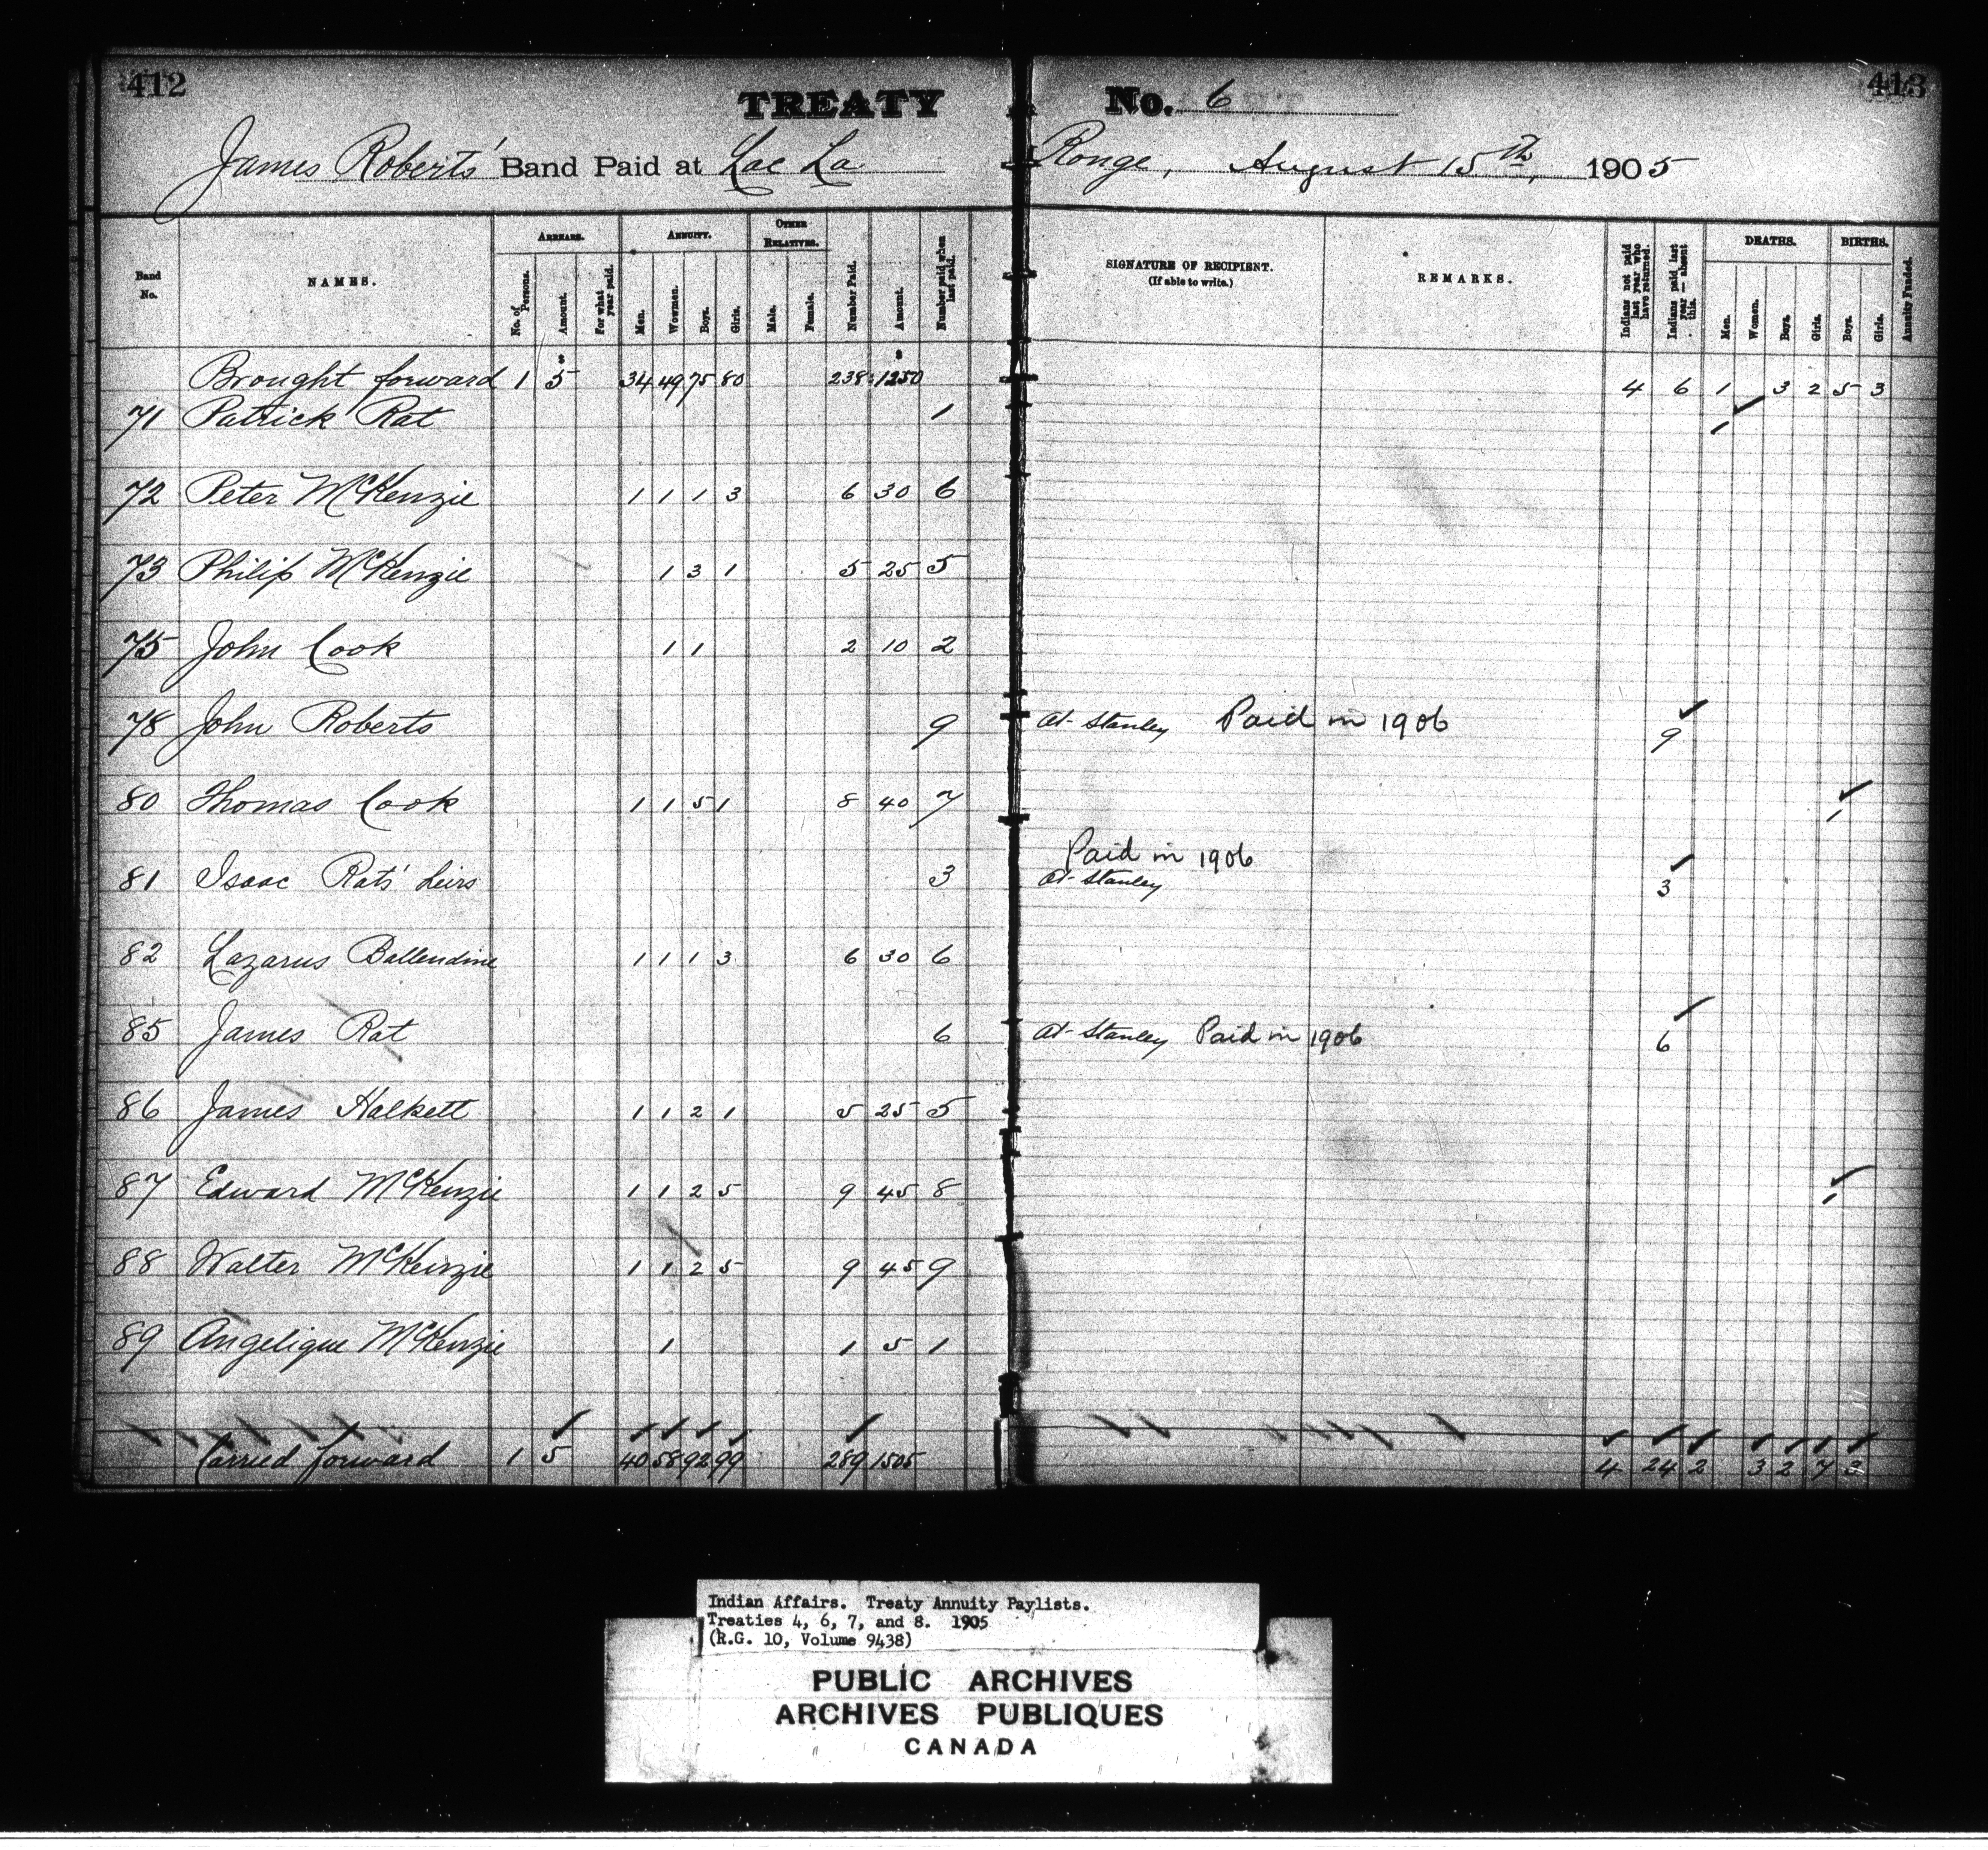 412
413
TREATY No. 6
James Roberts' Band Paid at Lac La Ronge, August 15th, 1905
Band No.
NAMES.
ARREARS.
No. of Persons.
Amount.
For what year paid.
ANNUITY.
Men.
Women.
Boys.
Girls.
OTHER RELATIVES.
Male.
Female.
Number Paid.
Amount.
Number paid when last paid.
SIGNATURE OF RECIPIENT.
(If able to write.)
REMARKS.
Indians not paid last year who have returned.
Indians paid last year — absent this.
DEATHS.
Men.
Women.
Boys.
Girls.
BIRTHS.
Boys.
Girls.
Annuity Funded.
Brought forward 1 5 34 49 75 80 238 1250 4 6 1 3 2 5 3
71 Patrick Rat 1 1
72 Peter McKenzie 1 1 1 3 6 30 6
73 Philip McKenzie 1 3 1 5 25 5
75 John Cook 1 1 2 10 2
78 John Roberts 9 At Stanley Paid in 1906 9
80 Thomas Cook 1 1 5 1 8 40 7 1
Paid in 1906
81 Isaac Rats' heirs 3 At Stanley 3
82 Lazarus Ballendine 1 1 1 3 6 30 6
85 James Rat 6 At Stanley Paid in 1906 6
86 James Halkett 1 1 2 1 5 25 5
87 Edward McKenzie 1 1 2 5 9 45 8 1
88 Walter McKenzie 1 1 2 5 9 45 9
89 Angelique McKenzie 1 1 5 1
Carried forward 1 5 40 58 92 99 289 1505 4 24 2 3 2 7 3
Indian Affairs. Treaty Annuity Paylists.
Treaties 4, 6, 7, and 8. 1905
(R.G. 10, Volume 9438)
PUBLIC ARCHIVES
ARCHIVES PUBLIQUES
CANADA